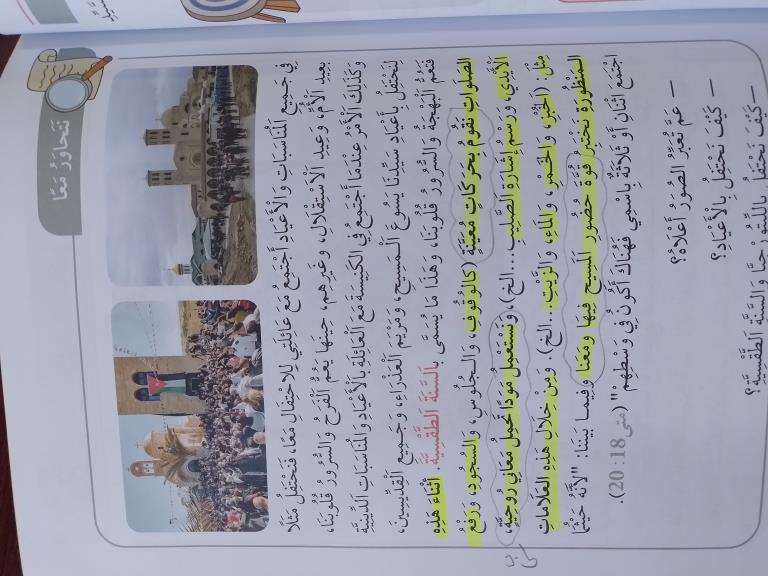 نَتَحاوَرُ مَعًا
في جَميعِ الْمُناسَباتِ وَالْأَعْيادِ أَجْتَمِعُ مَعَ عائِلَتي لِلِاحْتِفالِ مَعًا، فَنَحْتَفِلُ مَثَلًا
بِعيدِ الْأُمِّ، وَعيدِ الْاسْتِقْلالِ، وَغَيْرِهِم، حينَها يَعُمُّ الْفَرَحُ وَالسُّرورُ قُلوبَنا،
وَكَذلِكَ الْأَمْرُ عِنْدَما أَجْتَمِعُ فِي الْكَنيسَةِ مَعَ الْعائِلَةِ بِالْأَعْيادِ وَالْمُناسَباتِ الدّينِيَّةِ
لِنَحْتَفِلَ بِأَعْيادِ سَيِّدِنا يَسوعَ الْمَسيحِ، وَمَرْيَمَ الْعَذْراءِ، وَجَميعِ الْقِدّيسينَ،
فَتَعُمُّ الْبَهْجَةُ وَالسُّرورُ قُلوبَنا، وَهَذا ما يُسَمّى بِالسَّنَةِ الطَّقْسِيَّةِ. أَثْناءَ هَذِهِ
الصَّلَواتِ نَقومُ بِحَرَكاتٍ مُعَيَّنَةٍ (كَالْوُقوفِ، وَالْجُلوسِ، وَالسُّجودِ، وَرَفْعِ
الْأَيْدي، وَرَسْمِ إِشارَةِ الصَّليبِ...الخ)، وَنَسْتَعْمِلُ مَوادًّا تَحْمِلُ مَعانِيَ روحِيَّةٍ،
مِثْلَ: (الْخُبْزِ، وَالْخَمْرِ، وَالْماءِ، وَالزَّيْتِ...الخ). وَمِنْ خِلالِ هَذِهِ الْعَلاماتِ
الْمَنْظورَةِ نَخْتَبِرُ قُوَّةَ حُضورِ الْمَسيحِ فيها وَمَعَنا وَفيما بَيْنَنا: "لِأَنَّهُ حَيْثُما
اجْتَمَعَ اثْنانِ أَوْ ثَلاثَةٌ بِاسْمي فَهُناكَ أَكونُ في وَسْطِهِمْ" (متى 18: 20).
– عَمَّ تُعَبِّرُ الصُّوَرُ أَعْلاهُ؟
– كَيْفَ نَحْتَفِلُ بِالْأَعْيادِ؟
– كَيْفَ نَحْتَفِلُ بِاللّيتورْجِيّا وَالسَّنَةِ الطَّقْسِيَّةِ؟